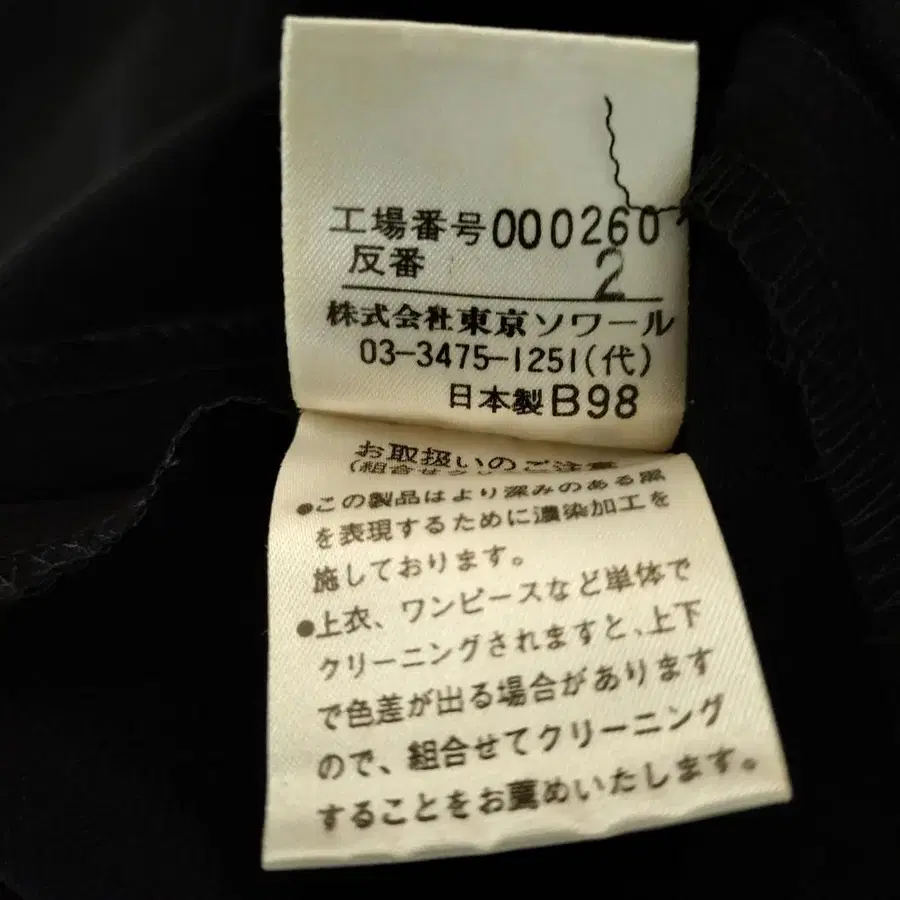 工場番号000260
反番 2
株式会社東京ソワール
03-3475-1251(代)
日本製B98
お取扱いのご注意
●この製品はより深みのある黒
を表現するために濃染加工を
施しております。
●上衣、ワンピースなど単体で
クリーニングされますと、上下
で色差が出る場合があります
ので、組合せてクリーニング
することをお薦めいたします。